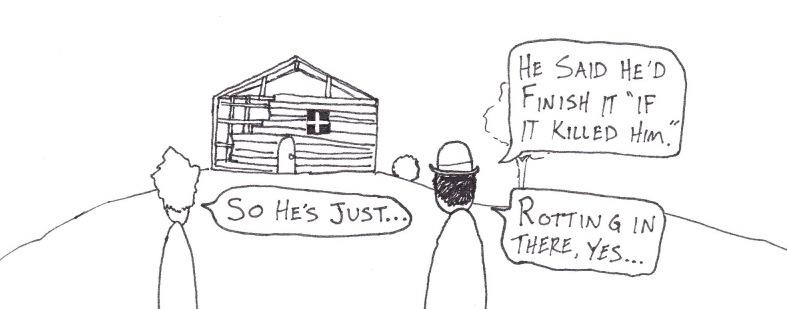 HE SAID HE'D
FINISH IT "IF
IT KILLED HIM."
SO HE'S JUST...
ROTTING IN
THERE, YES...